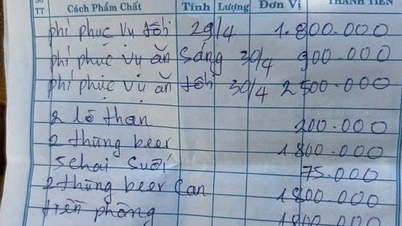 TT Cách Phẩm Chất Tính Lượng Đơn Vị THÀNH TIỀN
phí phục vụ tối 29/4 1.800.000
phí phục vụ ăn sáng 30/4 900.000
phí phục vụ ăn tối 30/4 2500.000
2 lò than 200.000
2 thùng beer 1800.000
5 chai suối 75.000
2 thùng beer can 1800.000
tiền phòng 1800.000